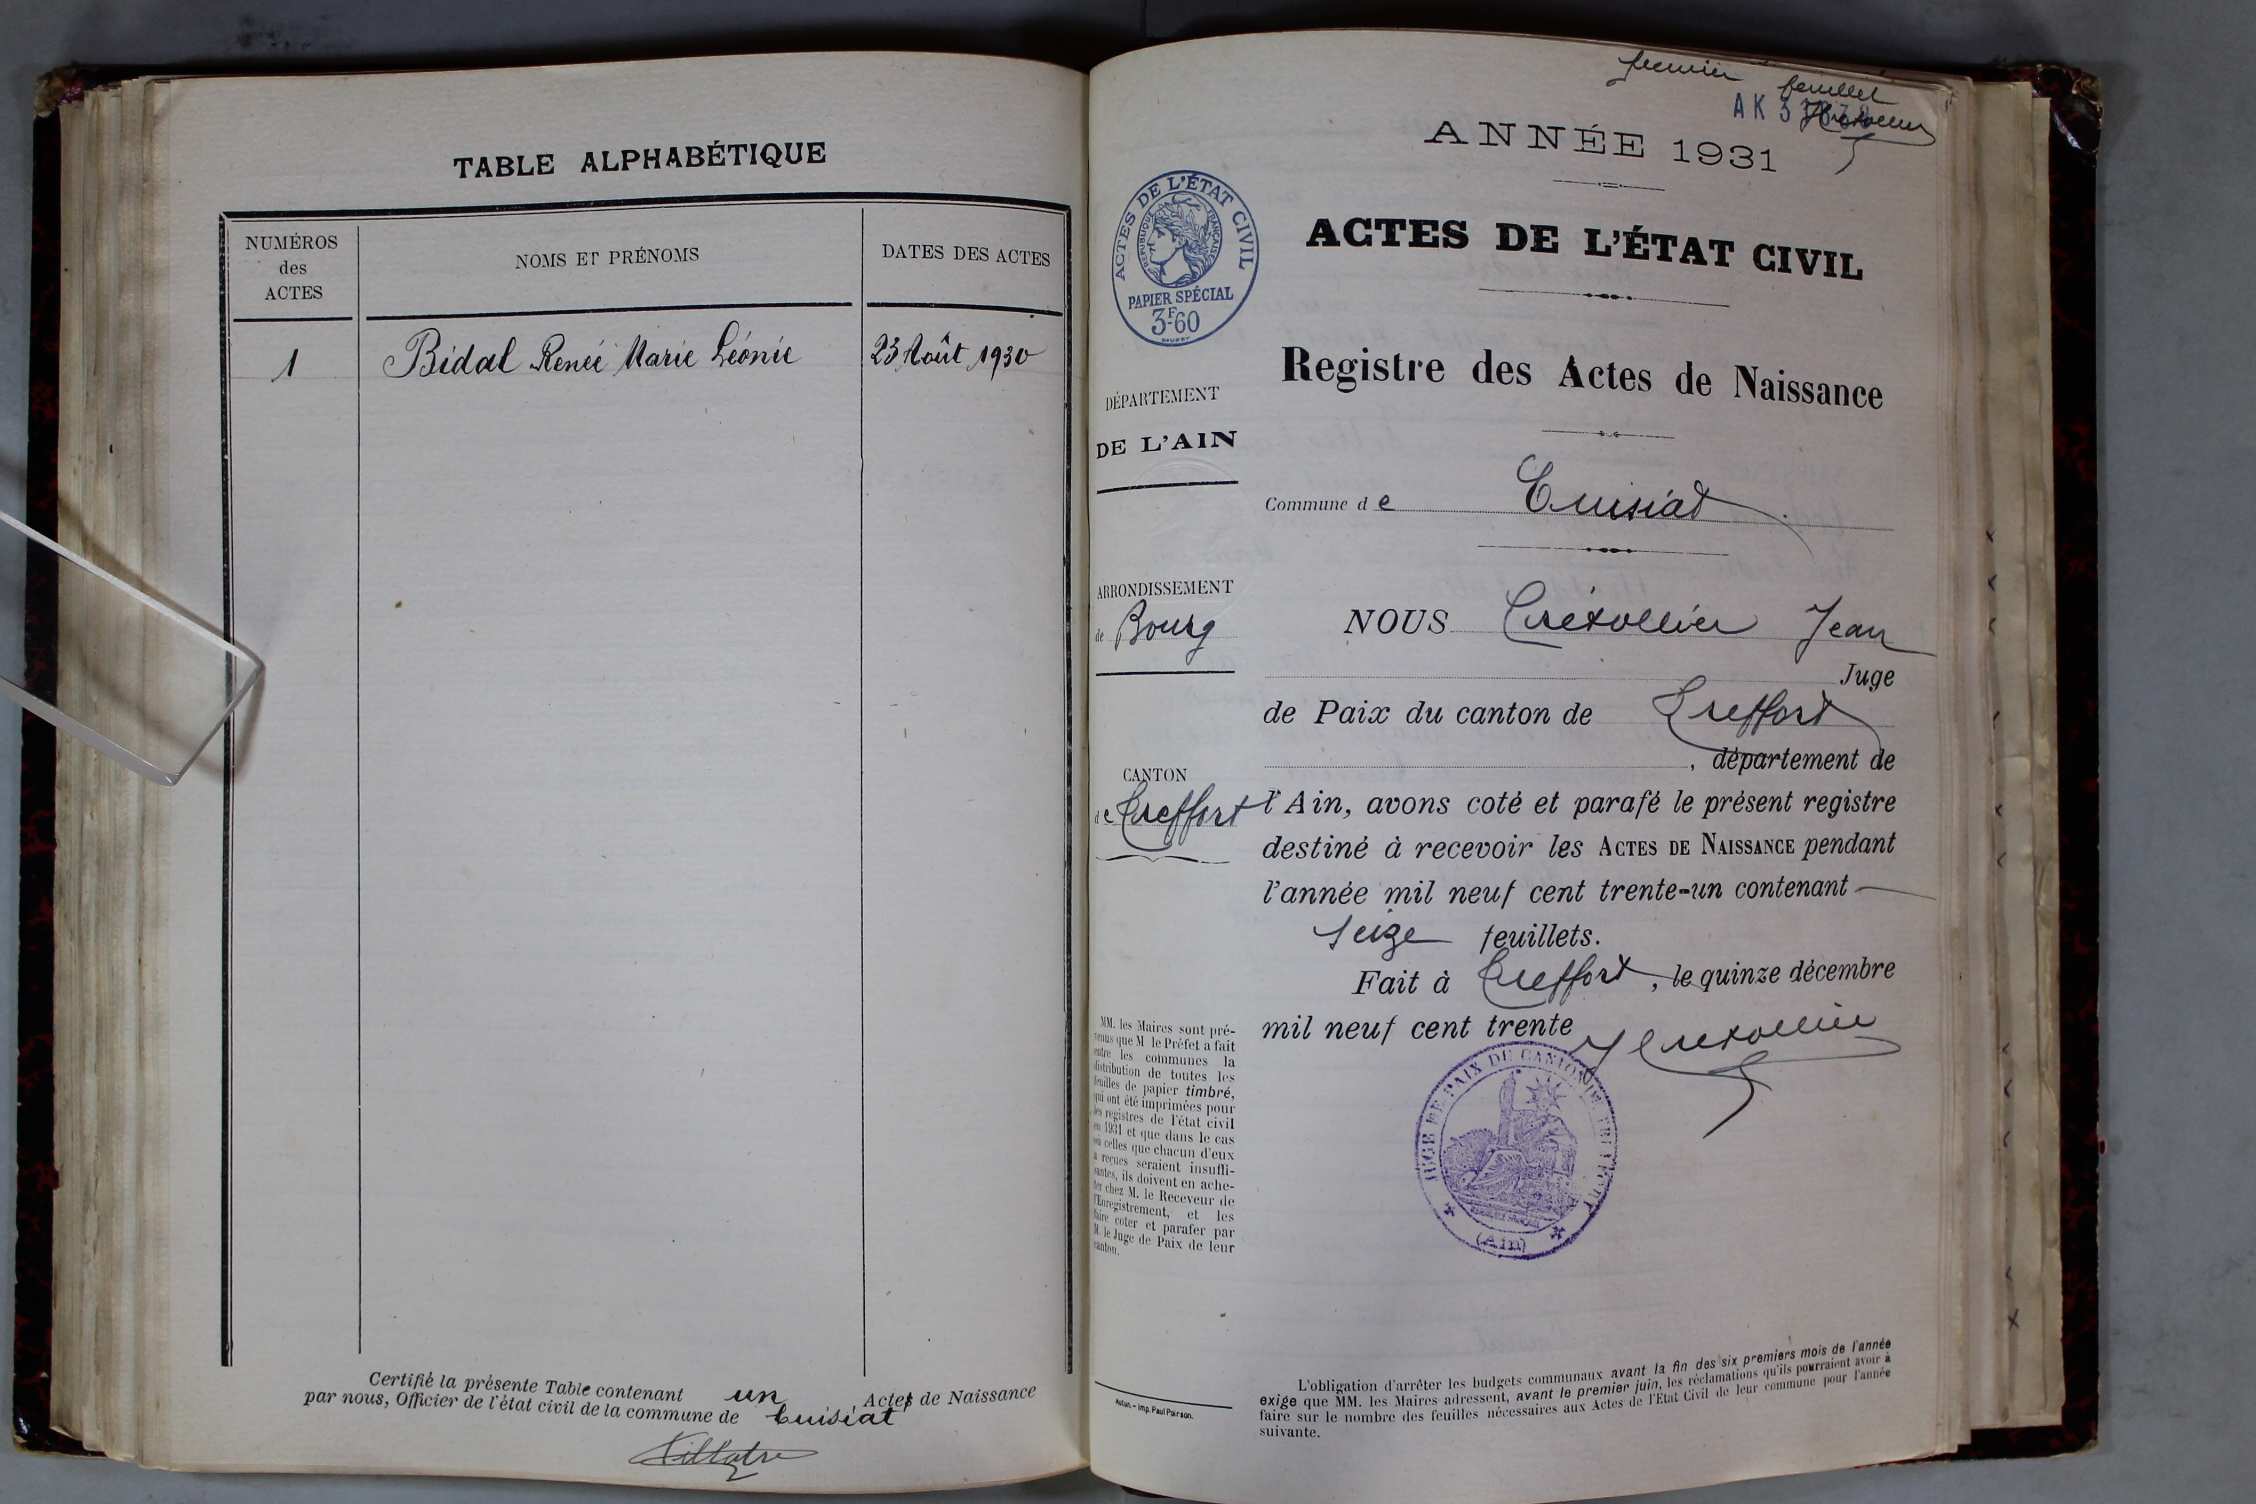 TABLE ALPHABÉTIQUE
NUMÉROS
des
ACTES
NOMS ET PRÉNOMS
DATES DES ACTES
1 Bidal Renée Marie Léonie 23 Août 1930
Certifié la présente Table contenant un Actes de Naissance
par nous, Officier de l'état civil de la commune de Cuisiat
premier
feuillet
AK 3
ANNÉE 1931
ACTES DE L'ÉTAT CIVIL
RÉPUBLIQUE FRANÇAISE
PAPIER SPÉCIAL
3F60
ACTES DE L'ÉTAT CIVIL
Registre des Actes de Naissance
DÉPARTEMENT
DE L'AIN
Commune de Cuisiat
ARRONDISSEMENT
de Bourg
NOUS Crétollier Jean
Juge
de Paix du canton de Treffort
, département de
CANTON
de Treffort
l'Ain, avons coté et parafé le présent registre
destiné à recevoir les ACTES DE NAISSANCE pendant
l'année mil neuf cent trente-un contenant
seize feuillets.
Fait à Treffort, le quinze décembre
mil neuf cent trente
JUGE DE PAIX DU CANTON DE TREFFORT
(Ain)
MM. les Maires sont pré-
venus que M le Préfet a fait
entre les communes la
distribution de toutes les
feuilles de papier timbré,
qui ont été imprimées pour
les registres de l'état civil
en 1931 et que dans le cas
où celles que chacun d'eux
a reçues seraient insuffi-
santes, ils doivent en ache-
ter chez M. le Receveur de
l'Enregistrement, et les
faire coter et parafer par
M. le Juge de Paix de leur
canton.
Autun. - Imp. Paul Poirson.
L'obligation d'arrêter les budgets communaux avant la fin des six premiers mois de l'année
exige que MM. les Maires adressent, avant le premier juin, les réclamations qu'ils pourraient avoir à
faire sur le nombre des feuilles nécessaires aux Actes de l'Etat Civil de leur commune pour l'année
suivante.